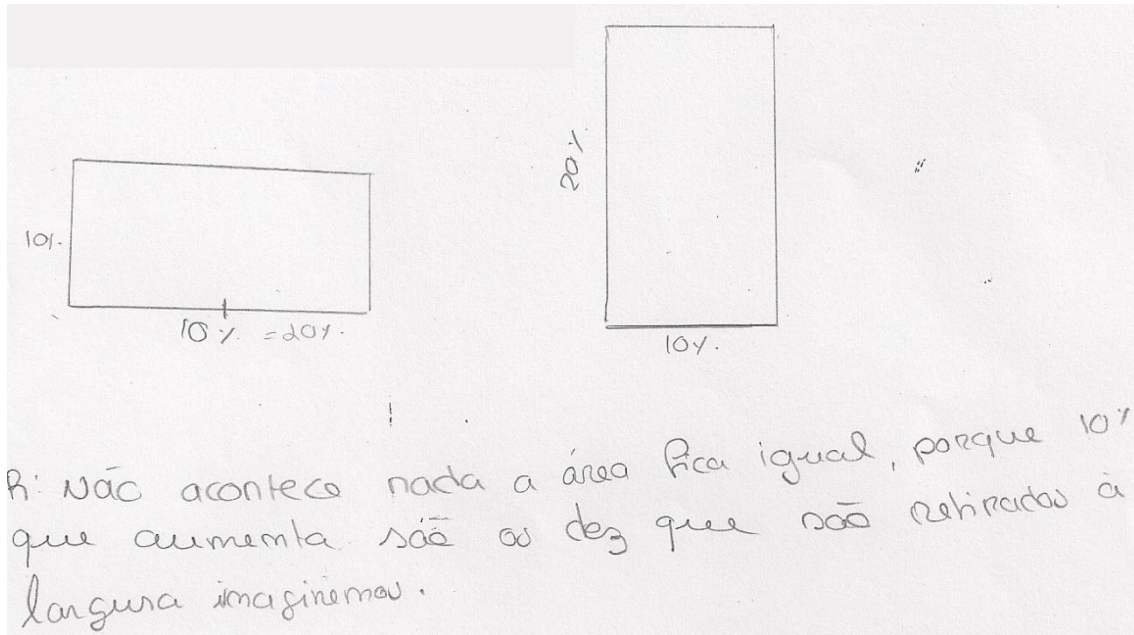 20%
10%
10% = 20%.
10%.
R: Não acontece nada a área fica igual, porque 10%
que aumenta são os dez que são retirados à
largura imaginemos.